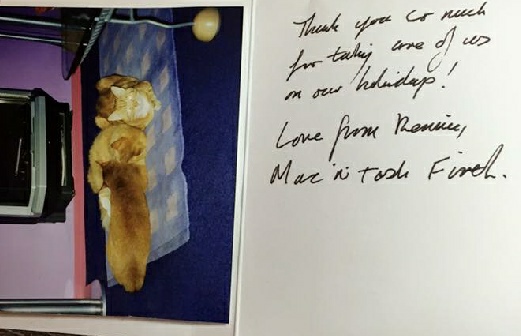 Thank you so much
for taking care of us
on our holidays!
Love from
Mac 'n Tosh